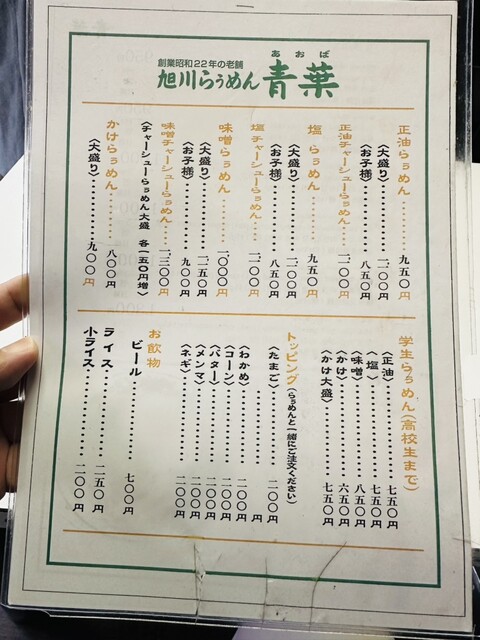 創業昭和22年の老舗
旭川らぅめん 青葉
あおば
正油らぅめん………九五〇円
〈大盛り〉………一、一〇〇円
〈お子様〉………八五〇円
正油チャーシューらぅめん……一、二〇〇円
塩らぅめん………九五〇円
〈大盛り〉………一、一〇〇円
〈お子様〉………八五〇円
塩チャーシューらぅめん……一、二〇〇円
味噌らぅめん………一、〇〇〇円
〈大盛り〉………一、一五〇円
〈お子様〉………九〇〇円
味噌チャーシューらぅめん……一、三〇〇円
〈チャーシューらぅめん大盛 各一五〇円増〉
かけらぅめん………八〇〇円
〈大盛り〉………九〇〇円
学生らぅめん(高校生まで)
〈正油〉………七五〇円
〈塩〉………七五〇円
〈味噌〉………八五〇円
〈かけ〉………六五〇円
〈かけ大盛〉………七五〇円
トッピング(らぅめんと一緒にご注文ください)
〈たまご〉………一〇〇円
………円
〈わかめ〉………一〇〇円
〈コーン〉………二〇〇円
〈バター〉………二〇〇円
〈メンマ〉………二〇〇円
〈ネギ〉………二〇〇円
お飲物
ビール………七〇〇円
ライス………二五〇円
小ライス………二〇〇円